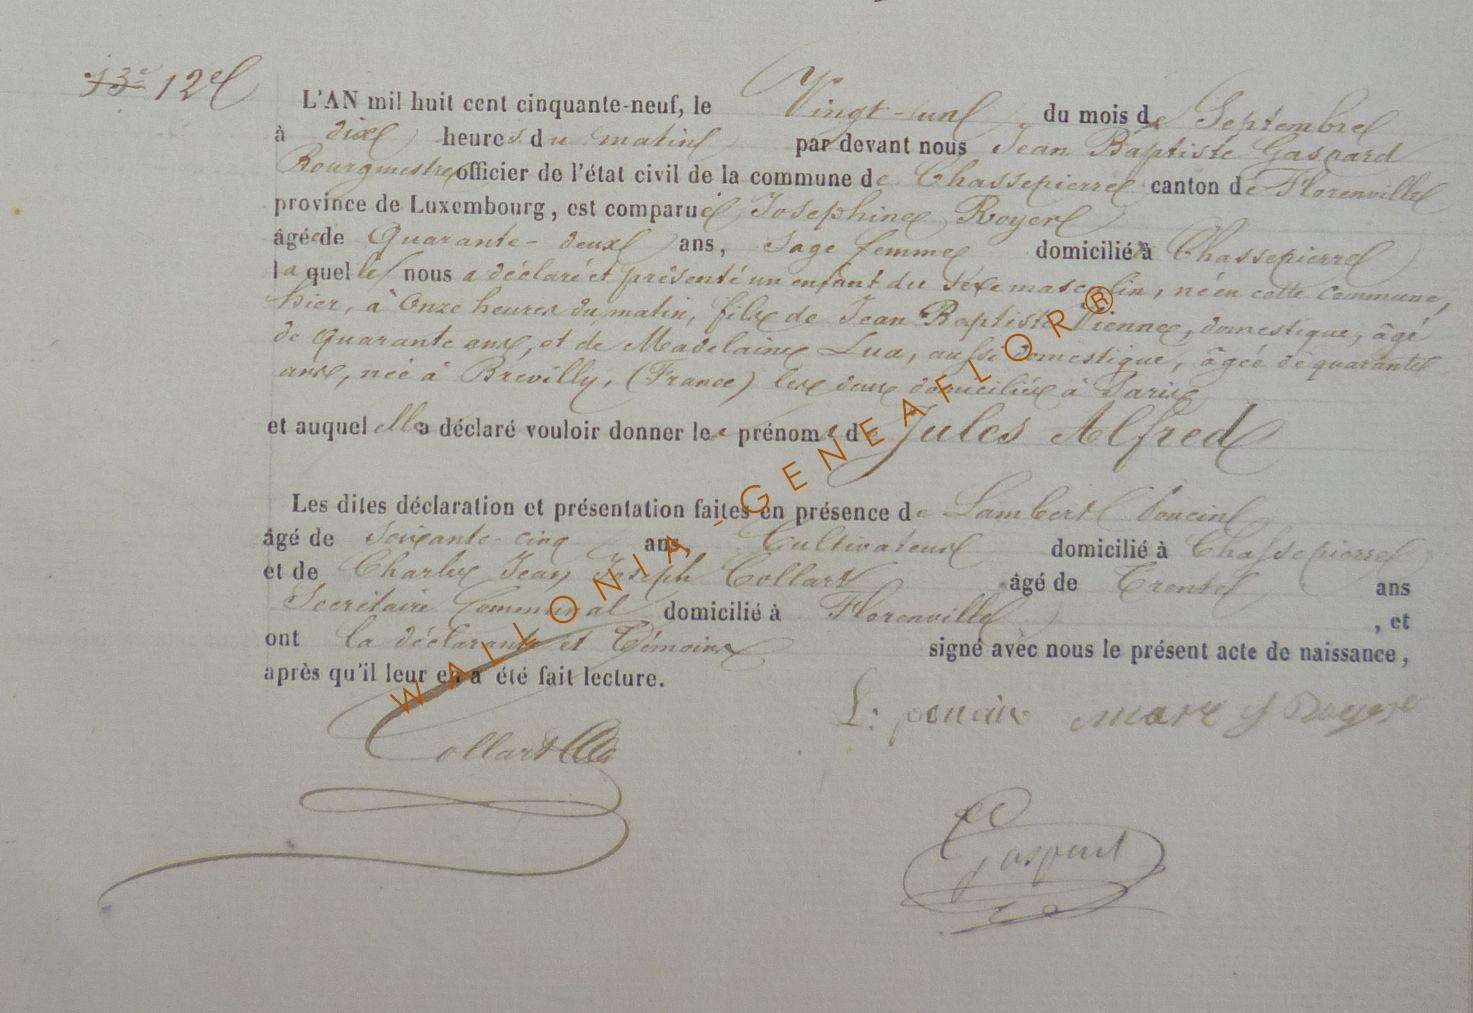 13e 12e
L'AN mil huit cent cinquante-neuf, le Vingt-un du mois de Septembre
à dix heures du matin par devant nous Jean Baptiste Gaspard
Bourgmestre officier de l'état civil de la commune de Chassepierre canton de Florenville
province de Luxembourg, est comparue Josephine Royer
âgée de Quarante-deux ans, Sage femme domiciliée à Chassepierre
laquelle nous a déclaré et présenté un enfant du sexe masculin, né en cette commune,
hier, à Onze heures du matin, fils de Jean Baptiste Vienne, domestique, âgé
de quarante ans, et de Madelaine Lux, aussi domestique, âgée de quarante
ans, née à Brevilly, (France) les deux domiciliés à Paris
et auquel elle a déclaré vouloir donner les prénoms de Jules Alfred
Les dites déclaration et présentation faites en présence de Lambert Poncin
âgé de soixante-cinq ans, Cultivateur domicilié à Chassepierre
et de Charles Jean Joseph Collart âgé de Trente ans
Secrétaire Communal domicilié à Florenville, et
ont la déclarante et Témoins signé avec nous le présent acte de naissance,
après qu'il leur en a été fait lecture.
L: poncin J Royer
Collart
Gaspard
WALLONIA-GENEAFLOR®